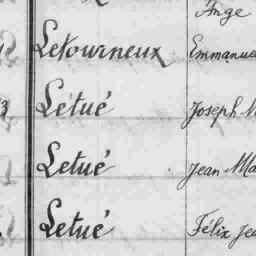 Ange
Letourneux Emmanuel
3 Letué Joseph M
Letué Jean Ma
Letué Félix Jea